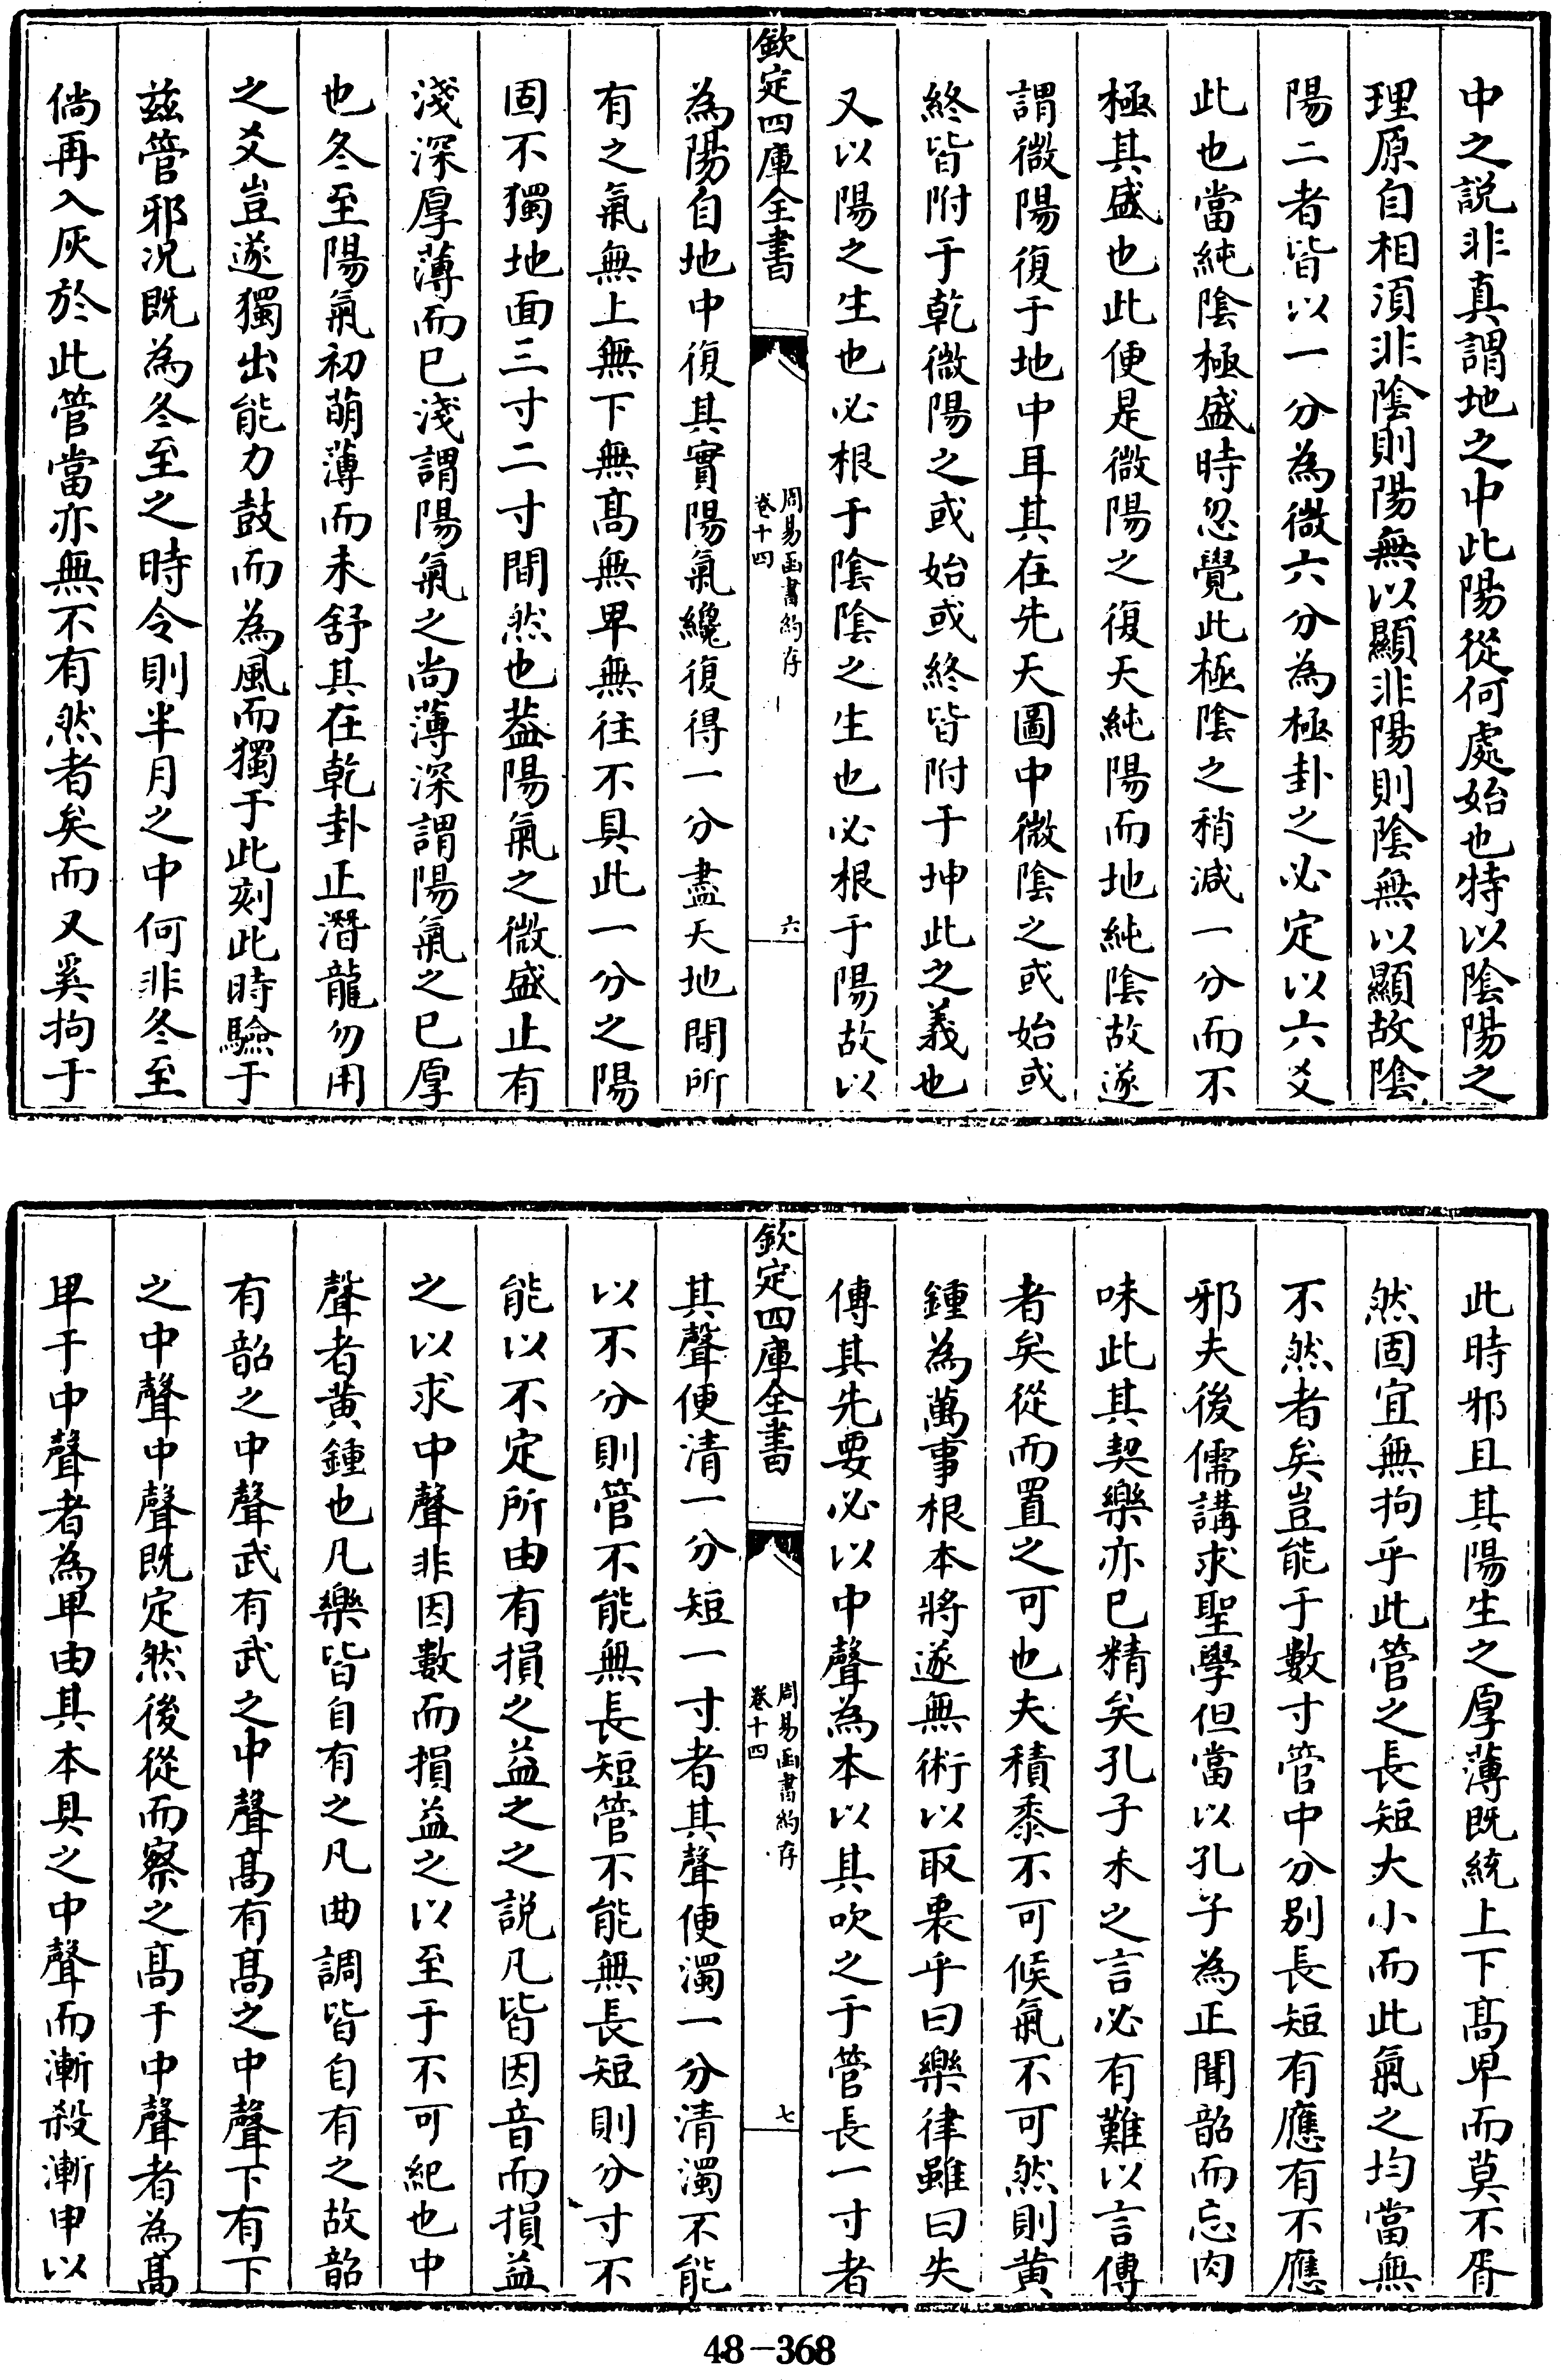 中之説非真謂地之中此陽從何處始也特以陰陽之
理原自相須非陰則陽無以顯非陽則陰無以顯故陰
陽二者皆以一分為微六分為極卦之必定以六爻
此也當純陰極盛時忽覺此極陰之稍減一分而不
極其盛也此便是微陽之復天純陽而地純陰故遂
謂微陽復于地中耳其在先天圖中微陰之或始或
終皆附于乾微陽之或始或終皆附于坤此之義也
又以陽之生也必根于陰陰之生也必根于陽故以
欽定四庫全書
周易函書約存
卷十四
六
為陽自地中復其實陽氣纔復得一分盡天地間所
有之氣無上無下無髙無卑無往不具此一分之陽
固不獨地面三寸二寸間然也葢陽氣之微盛止有
淺深厚薄而已淺謂陽氣之尚薄深謂陽氣之已厚
也冬至陽氣初萌薄而未舒其在乾卦正潛龍勿用
之爻豈遂獨出能力鼓而為風而獨于此刻此時驗于
兹管邪况既為冬至之時令則半月之中何非冬至
倘再入灰於此管當亦無不有然者矣而又奚拘于
此時邪且其陽生之厚薄既統上下髙卑而莫不胥
然固宜無拘乎此管之長短大小而此氣之均當無
不然者矣豈能于數寸管中分别長短有應有不應
邪夫後儒講求聖學但當以孔子為正聞韶而忘肉
味此其契樂亦已精矣孔子未之言必有難以言傳
者矣從而置之可也夫積黍不可候氣不可然則黄
鍾為萬事根本將遂無術以取裏乎曰樂律雖曰失
傳其先要必以中聲為本以其吹之于管長一寸者
欽定四庫全書
周易函書約存
卷十四
七
其聲便清一分短一寸者其聲便濁一分清濁不能
以不分則管不能無長短管不能無長短則分寸不
能以不定所由有損之益之之説凡皆因音而損益
之以求中聲非因數而損益之以至于不可紀也中
聲者黄鍾也凡樂皆自有之凡曲調皆自有之故韶
有韶之中聲武有武之中聲髙有髙之中聲下有下
之中聲中聲既定然後從而察之髙于中聲者為髙
卑于中聲者為卑由其本具之中聲而漸殺漸申以
48-368